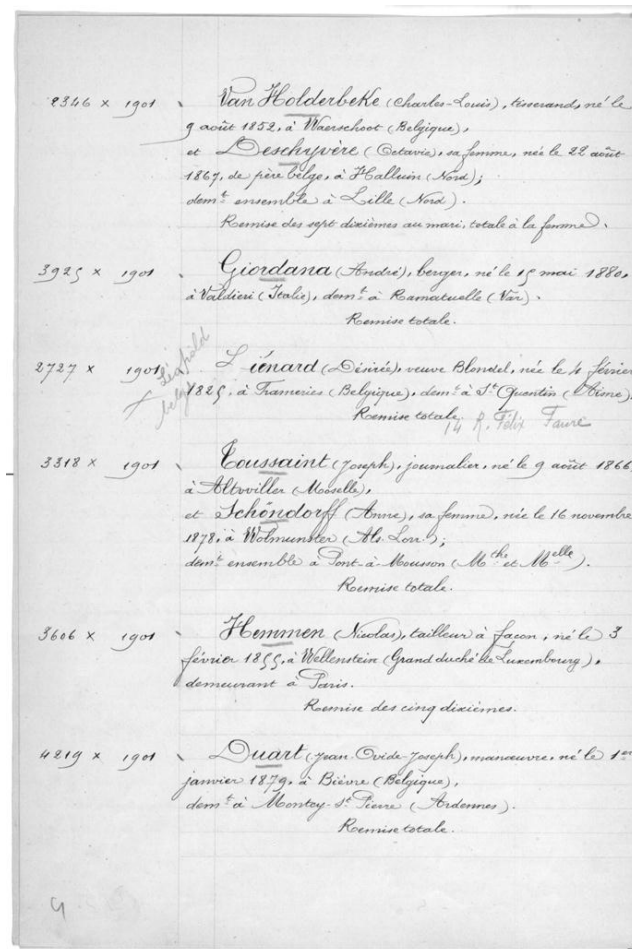 2346 x 1901 Van Holderbeke (Charles-Louis), tisserand, né le
9 août 1852, à Waerschoot (Belgique),
et Deschyvère (Octavie), sa femme, née le 22 août
1867, de père belge, à Halluin (Nord);
demt ensemble à Lille (Nord).
Remise des sept dixièmes au mari, totale à la femme.
3925 x 1901 Giordana (André), berger, né le 15 mai 1880,
à Valdieri (Italie), demt à Ramatuelle (Var).
Remise totale.
2727 x 1901 Liénard (Désirée), veuve Blondel, née le 4 février
Léopold
belge
1825, à Frameries (Belgique), demt à St Quentin (Aisne).
Remise totale.
14 R. Félix Faure
3318 x 1901 Toussaint (Joseph), journalier, né le 9 août 1866,
à Altviller (Moselle),
et Schöndorff (Anne), sa femme, née le 16 novembre
1878, à Wolmunster (Als. Lorr.);
demt ensemble à Pont-à-Mousson (Mthe et Melle).
Remise totale.
3606 x 1901 Hemmen (Nicolas), tailleur à façon, né le 3
février 1855, à Wellenstein (Grand duché de Luxembourg),
demeurant à Paris.
Remise des cinq dixièmes.
4219 x 1901 Duart (Jean-Ovide-Joseph), manœuvre, né le 1er
janvier 1879, à Bièvre (Belgique),
demt à Montcy-St Pierre (Ardennes).
Remise totale.